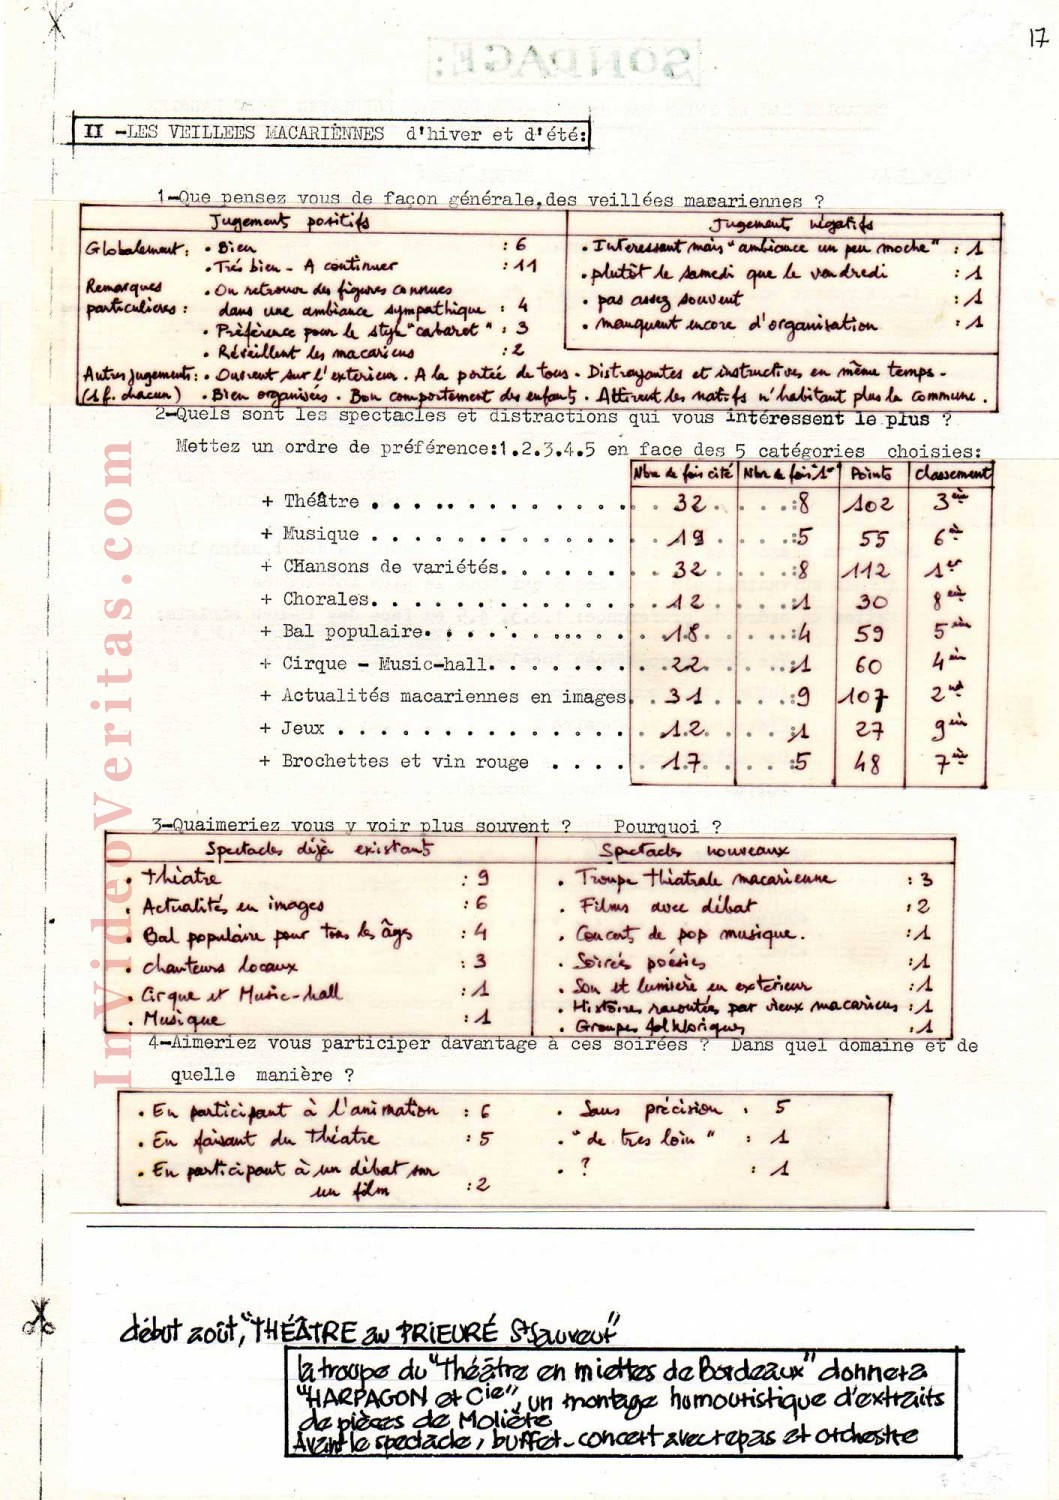 17
SONDAGE:
II -LES VEILLEES MACARIENNES d'hiver et d'été:
1-Que pensez vous de façon générale,des veillées macariennes ?
Jugements positifs
Jugements négatifs
Globalement: . Bien : 6
. Très bien - A continuer : 11
Remarques particulières : . On retrouve des figures connues
dans une ambiance sympathique : 4
. Préférence pour le style "cabaret" : 3
. Réveillent les macariens : 2
. Interessant mais "ambiance un peu moche" : 1
. plutôt le samedi que le vendredi : 1
. pas assez souvent : 1
. manquent encore d'organisation : 1
Autres jugements: . Ouvrent sur l'exterieur. A la portée de tous. Distrayantes et instructives en même temps.
(1 f. chacun) . Bien organisées. Bon comportement des enfants. Attirent les natifs n'habitant plus la commune.
2-Quels sont les spectacles et distractions qui vous intéressent le plus ?
Mettez un ordre de préférence:1.2.3.4.5 en face des 5 catégories choisies:
Nbre de fois cité Nbr de fois 1er Points Classement
+ Théâtre 32 :8 102 3ème
+ Musique 19 :5 55 6è
+ CHansons de variétés 32 :8 112 1er
+ Chorales 12 :1 30 8ème
+ Bal populaire 18 :4 59 5ème
+ Cirque - Music-hall 22 :1 60 4èm
+ Actualités macariennes en images 31 :9 107 2nd
+ Jeux 12 :1 27 9èm
+ Brochettes et vin rouge 17 :5 48 7ème
3-Quaimeriez vous y voir plus souvent ? Pourquoi ?
Spectacles déjà existants
. théatre : 9
. Actualités en images : 6
. Bal populaire pour tous les âges : 4
. chanteurs locaux : 3
. Cirque et Music-hall : 1
. Musique : 1
Spectacles nouveaux
. Troupe théatrale macarienne : 3
. Films avec débat : 2
. Concerts de pop musique. : 1
. Soirées poésies : 1
. Son et lumière en exterieur : 1
. Histoires racontées par vieux macariens : 1
. Groupes folkloriques : 1
4-Aimeriez vous participer davantage à ces soirées ? Dans quel domaine et de
quelle manière ?
. En participant à l'animation : 6
. En faisant du théatre : 5
. En participant à un débat sur
un film : 2
. Sans précision . 5
. "de tres loin" : 1
. ? : 1
début août, "THÉÂTRE au PRIEURÉ St Sauveur"
la troupe du "Théâtre en miettes de Bordeaux" donnera
"HARPAGON et Cie", un montage humouristique d'extraits
de pièces de Molière
Avant le spectacle, buffet-concert avec repas et orchestre
InVideoVeritas.com